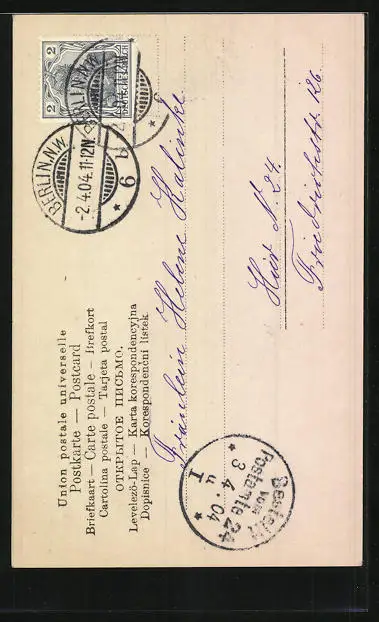 Union postale universelle
Postkarte — Postcard
Briefkaart — Carte postale — Brefkort
Cartolina postale — Tarjeta postal
ОТКРЫТОЕ ПИСЬМО.
Levelező-Lap — Karta korespondencyjna
Dopisnice — Korespondenční listek.
2 2
DEUTSCHES REICH
BERLIN, N.W.
-2.4.04.11-12N.
* 6 b
Fräulein Helene Kalinke
Hier N. 24.
Friedrichstr. 126
Bestellt
vom
Postamte 24
* 3 4 · 04 *
I